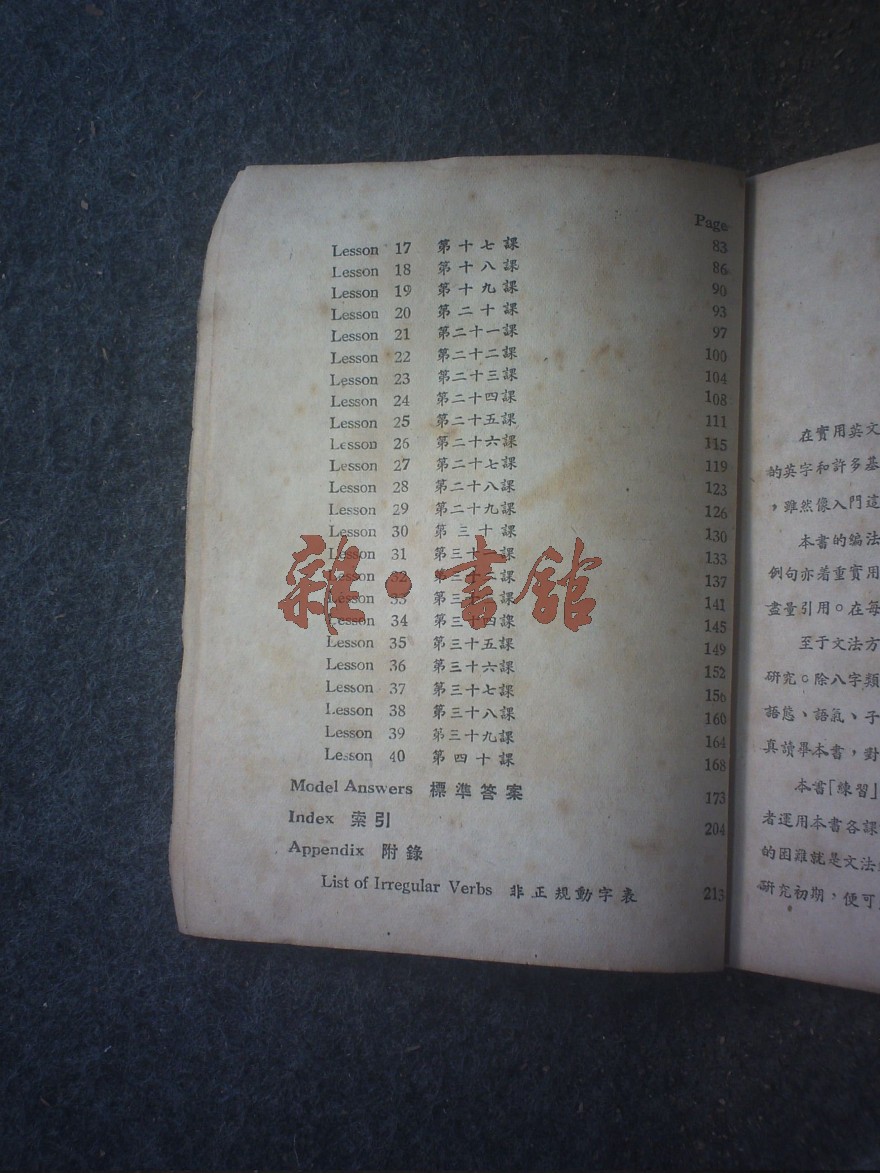 Page
Lesson 17 第十七課 83
Lesson 18 第十八課 86
Lesson 19 第十九課 90
Lesson 20 第二十課 93
Lesson 21 第二十一課 97
Lesson 22 第二十二課 100
Lesson 23 第二十三課 104
Lesson 24 第二十四課 108
Lesson 25 第二十五課 111
Lesson 26 第二十六課 115
Lesson 27 第二十七課 119
Lesson 28 第二十八課 123
Lesson 29 第二十九課 126
Lesson 30 第三十課 130
Lesson 31 第三十一課 133
Lesson 32 第三十二課 137
Lesson 33 第三十三課 141
Lesson 34 第三十四課 145
Lesson 35 第三十五課 149
Lesson 36 第三十六課 152
Lesson 37 第三十七課 156
Lesson 38 第三十八課 160
Lesson 39 第三十九課 164
Lesson 40 第四十課 168
Model Answers 標準答案 173
Index 索引 204
Appendix 附錄
List of Irregular Verbs 非正規動字表 213
雜·書館
在實用英文
的英字和許多基
，雖然像入門這
本書的編法
例句亦着重實用
盡量引用。在每
至于文法方
研究。除八字類
語態、語氣、子
真讀畢本書，對
本書「練習」
者運用本書各課
的困難就是文法
研究初期，便可